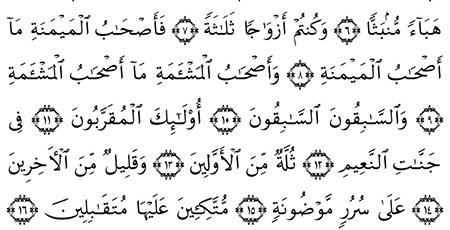 هَبَآءً مُّنۢبَثًّا ﴿٦﴾ وَكُنتُمْ أَزْوَٰجًا ثَلَـٰثَةً ﴿٧﴾ فَأَصْحَـٰبُ ٱلْمَيْمَنَةِ مَآ
أَصْحَـٰبُ ٱلْمَيْمَنَةِ ﴿٨﴾ وَأَصْحَـٰبُ ٱلْمَشْـَٔمَةِ مَآ أَصْحَـٰبُ ٱلْمَشْـَٔمَةِ
﴿٩﴾ وَٱلسَّـٰبِقُونَ ٱلسَّـٰبِقُونَ ﴿١٠﴾ أُو۟لَـٰٓئِكَ ٱلْمُقَرَّبُونَ ﴿١١﴾ فِى
جَنَّـٰتِ ٱلنَّعِيمِ ﴿١٢﴾ ثُلَّةٌ مِّنَ ٱلْأَوَّلِينَ ﴿١٣﴾ وَقَلِيلٌ مِّنَ ٱلْـَٔاخِرِينَ
﴿١٤﴾ عَلَىٰ سُرُرٍ مَّوْضُونَةٍ ﴿١٥﴾ مُّتَّكِـِٔينَ عَلَيْهَا مُتَقَـٰبِلِينَ ﴿١٦﴾